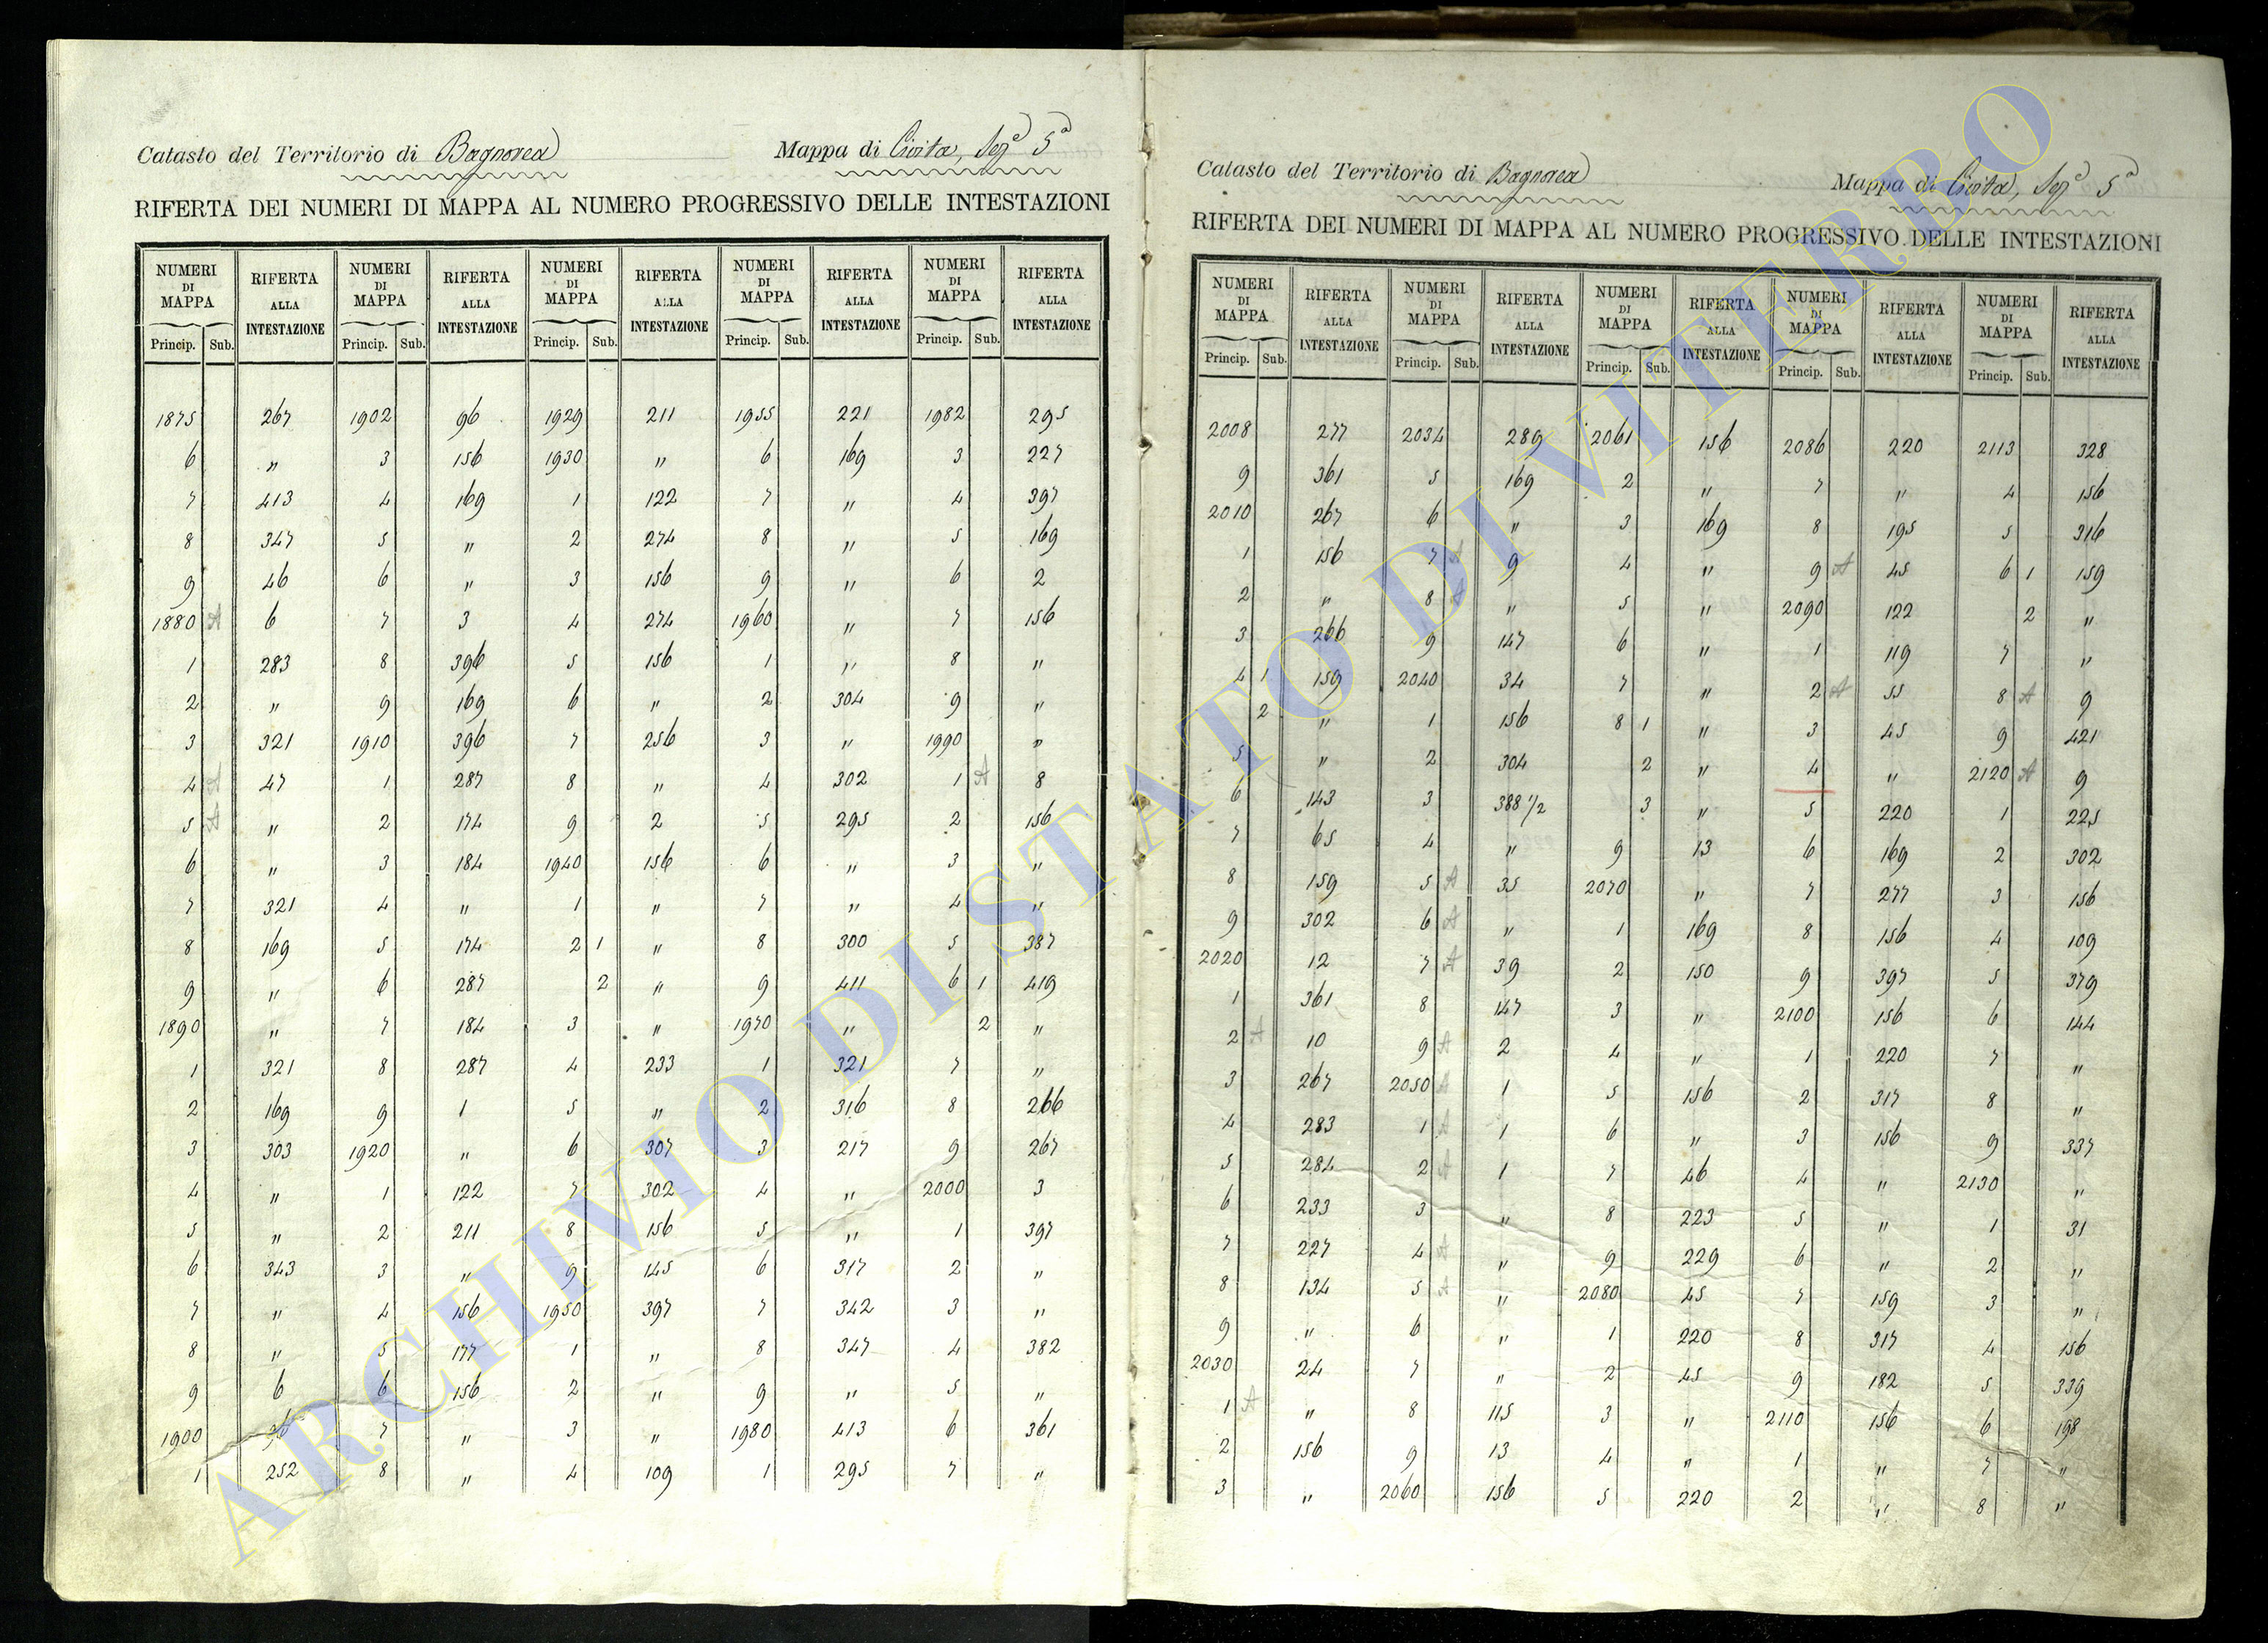 Catasto del Territorio di Bagnorea Mappa di Civita, Sez.e 5a
RIFERTA DEI NUMERI DI MAPPA AL NUMERO PROGRESSIVO DELLE INTESTAZIONI
NUMERI DI MAPPA RIFERTA ALLA INTESTAZIONE NUMERI DI MAPPA RIFERTA ALLA INTESTAZIONE NUMERI DI MAPPA RIFERTA ALLA INTESTAZIONE NUMERI DI MAPPA RIFERTA ALLA INTESTAZIONE NUMERI DI MAPPA RIFERTA ALLA INTESTAZIONE
Princip. Sub. Princip. Sub. Princip. Sub. Princip. Sub. Princip. Sub.
1875 267 1902 96 1929 211 1955 221 1982 295
6 " 3 156 1930 " 6 169 3 227
7 413 4 169 1 122 7 " 4 397
8 347 5 " 2 274 8 " 5 169
9 46 6 " 3 156 9 " 6 2
1880 A 6 7 3 4 274 1960 " 7 156
1 283 8 396 5 156 1 " 8 "
2 " 9 169 6 " 2 304 9 "
3 321 1910 396 7 256 3 " 1990 "
4 A 47 1 287 8 " 4 302 1 A 8
5 A " 2 174 9 2 5 295 2 156
6 " 3 184 1940 156 6 " 3 "
7 321 4 " 1 " 7 " 4 "
8 169 5 174 2 1 " 8 300 5 387
9 " 6 287 2 " 9 411 6 1 419
1890 " 7 184 3 " 1970 " 2 "
1 321 8 287 4 233 1 321 7 "
2 169 9 1 5 " 2 316 8 266
3 303 1920 " 6 307 3 217 9 267
4 " 1 122 7 302 4 " 2000 3
5 " 2 211 8 156 5 " 1 397
6 343 3 " 9 145 6 317 2 "
7 " 4 156 1950 397 7 342 3 "
8 " 5 177 1 " 8 347 4 382
9 6 6 156 2 " 9 " 5 "
1900 7 " 3 " 1980 413 6 361
1 252 8 " 4 109 1 295 7 "
Catasto del Territorio di Bagnorea Mappa di Civita, Sez.e 5a
RIFERTA DEI NUMERI DI MAPPA AL NUMERO PROGRESSIVO DELLE INTESTAZIONI
NUMERI DI MAPPA RIFERTA ALLA INTESTAZIONE NUMERI DI MAPPA RIFERTA ALLA INTESTAZIONE NUMERI DI MAPPA RIFERTA ALLA INTESTAZIONE NUMERI DI MAPPA RIFERTA ALLA INTESTAZIONE NUMERI DI MAPPA RIFERTA ALLA INTESTAZIONE
Princip. Sub. Princip. Sub. Princip. Sub. Princip. Sub. Princip. Sub.
2008 277 2034 289 2061 156 2086 220 2113 328
9 361 5 169 2 " 7 " 4 156
2010 267 6 " 3 169 8 195 5 316
1 156 7 A 9 4 " 9 A 45 6 1 159
2 " 8 A " 5 " 2090 122 2 "
3 266 9 147 6 " 1 119 7 "
4 1 159 2040 34 7 " 2 A 55 8 A 9
2 " 1 156 8 1 " 3 45 9 421
5 " 2 304 2 " 4 " 2120 A 9
6 143 3 388 1/2 3 " 5 220 1 225
7 65 4 " 9 13 6 169 2 302
8 159 5 A 35 2070 " 7 277 3 156
9 302 6 A " 1 169 8 156 4 109
2020 12 7 A 39 2 150 9 397 5 379
1 361 8 147 3 " 2100 156 6 144
2 A 10 9 A 2 4 " 1 220 7 "
3 267 2050 A 1 5 156 2 317 8 "
4 283 1 A 1 6 " 3 156 9 337
5 284 2 A 1 7 46 4 " 2130 "
6 233 3 " 8 223 5 " 1 31
7 227 4 A " 9 229 6 " 2 "
8 134 5 A " 2080 45 7 159 3 "
9 " 6 " 1 220 8 317 4 156
2030 24 7 " 2 45 9 182 5 339
1 A " 8 115 3 " 2110 156 6 198
2 156 9 13 4 " 1 " 7 "
3 " 2060 156 5 220 2 " 8 "
ARCHIVIO DI STATO DI VITERBO